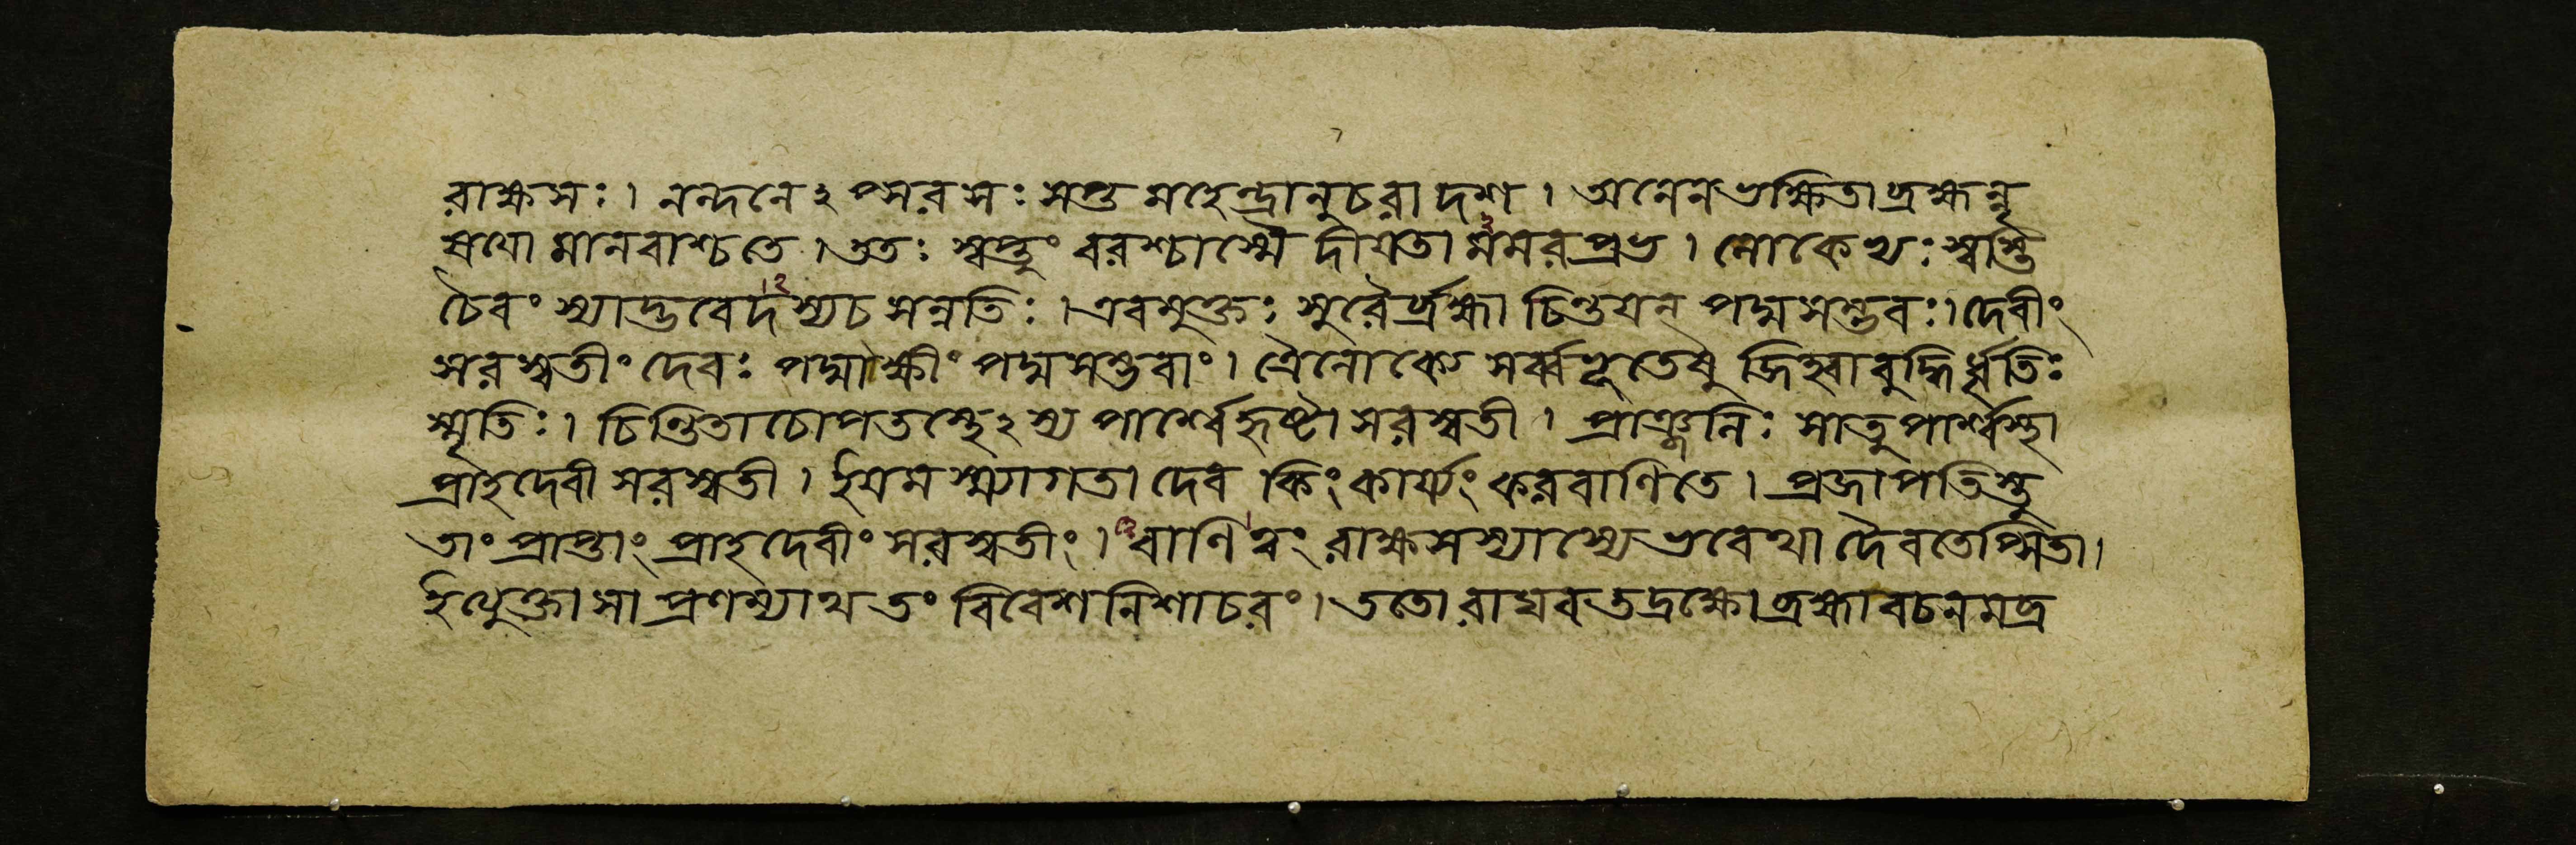 রাক্ষসঃ। নন্দনেঽপ্সরসঃ সপ্ত মহেন্দ্রানুচরা দশ। অনেন ভক্ষিতা ব্রহ্মন্নৃ
ষয়ো মানবাশ্চ তে। ততঃ স্বপ্তুং বরশ্চাস্মৈ দীয়তা মমরপ্রভ। লোকেভ্যঃ স্বস্তি
চৈবং স্যাদ্ভবেদস্য চ সন্নতিঃ। এবমুক্তঃ সুরৈর্ব্রহ্মা চিন্তয়ন্ পদ্মসম্ভবঃ। দেবীং
সরস্বতীং দেবঃ পদ্মাক্ষীং পদ্মসম্ভবাং। ত্রৈলোক্যে সর্ব্বভূতেষু জিহ্বা বুদ্ধির্ধৃতিঃ
স্মৃতিঃ। চিন্তিতা চোপতস্থেঽস্য পার্শ্বে হৃষ্টা সরস্বতী। প্রাঞ্জলিঃ সা তু পার্শ্বস্থা
প্রাহ দেবী সরস্বতী। ইয়মস্ম্যাগতা দেব কিং কার্য্যং করবাণি তে। প্রজাপতিস্তু
তাং প্রাপ্তাং প্রাহ দেবীং সরস্বতীং। বাণি ত্বং রাক্ষসস্যাস্যে ভবেথা দৈবতেপ্সিতা।
ইত্যুক্তা সা প্রণম্যাথ তং বিবেশ নিশাচরং। ততো রাঘব তদ্রক্ষো ব্রহ্মা বচনমব্র